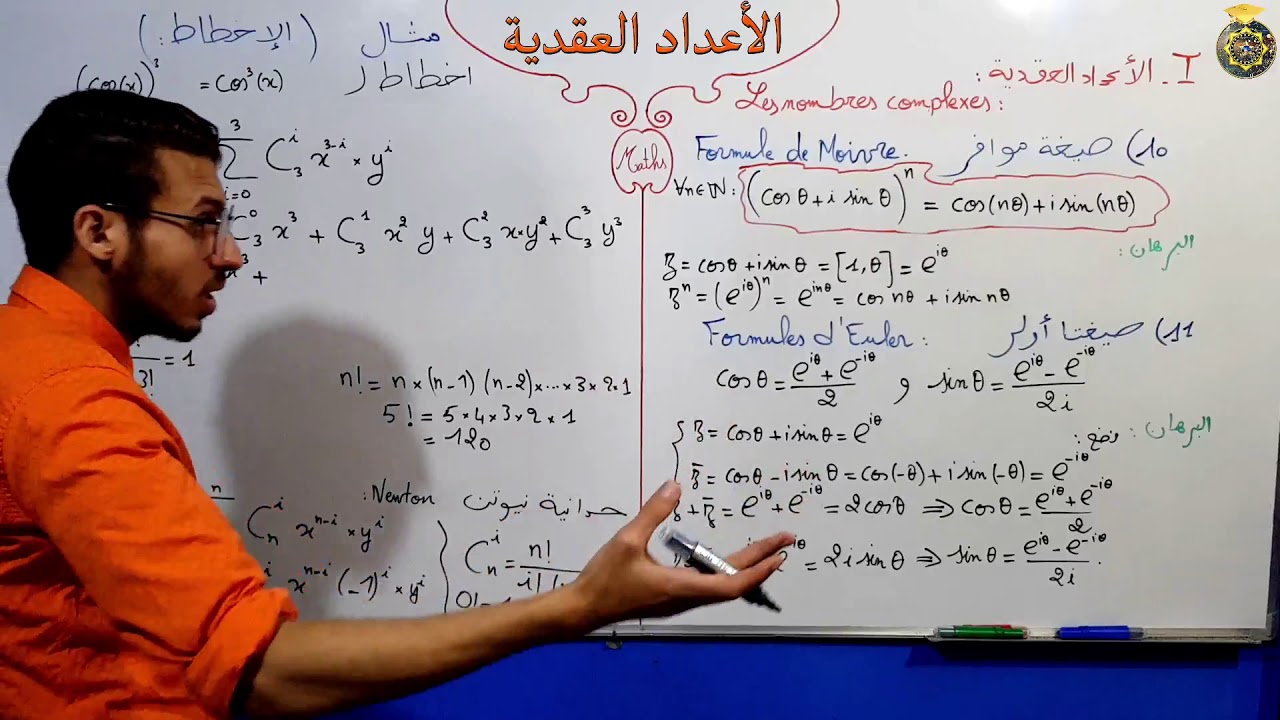 الأعداد العقدية
I. الأعداد العقدية:
Les nombres complexes:
Maths
10) صيغة موافر
Formule de Moivre.
∀n∈ℕ: (cosθ+i sinθ)^n = cos(nθ)+i sin(nθ)
البرهان:
z = cosθ+i sinθ = [1,θ] = e^{iθ}
z^n = (e^{iθ})^n = e^{inθ} = cos nθ + i sin nθ
11) صيغتا أولر
Formules d'Euler:
cosθ = (e^{iθ}+e^{-iθ})/2 و sinθ = (e^{iθ}-e^{-iθ})/2i
البرهان:
نضع:
z = cosθ+i sinθ = e^{iθ}
z̄ = cosθ-i sinθ = cos(-θ)+i sin(-θ) = e^{-iθ}
z+z̄ = e^{iθ}+e^{-iθ} = 2cosθ ⇒ cosθ = (e^{iθ}+e^{-iθ})/2
= 2i sinθ ⇒ sinθ = (e^{iθ}-e^{-iθ})/2i.
مثال (الإخطاط:)
اخطاط ل
(cos(x))^3 = cos^3(x)
∑_{i=0}^{3} C_3^i x^{3-i} × y^i
C_3^0 x^3 + C_3^1 x^2 y + C_3^2 x×y^2 + C_3^3 y^3
+
3! = 1
n! = n×(n-1)(n-2)×...×3×2×1
5! = 5×4×3×2×1
= 120
حدانية نيوتن Newton:
n C_n^i x^{n-i} × y^i
x^{n-i} (-1)^i × y^i
C_n^i = n!/i!(
0! = 1